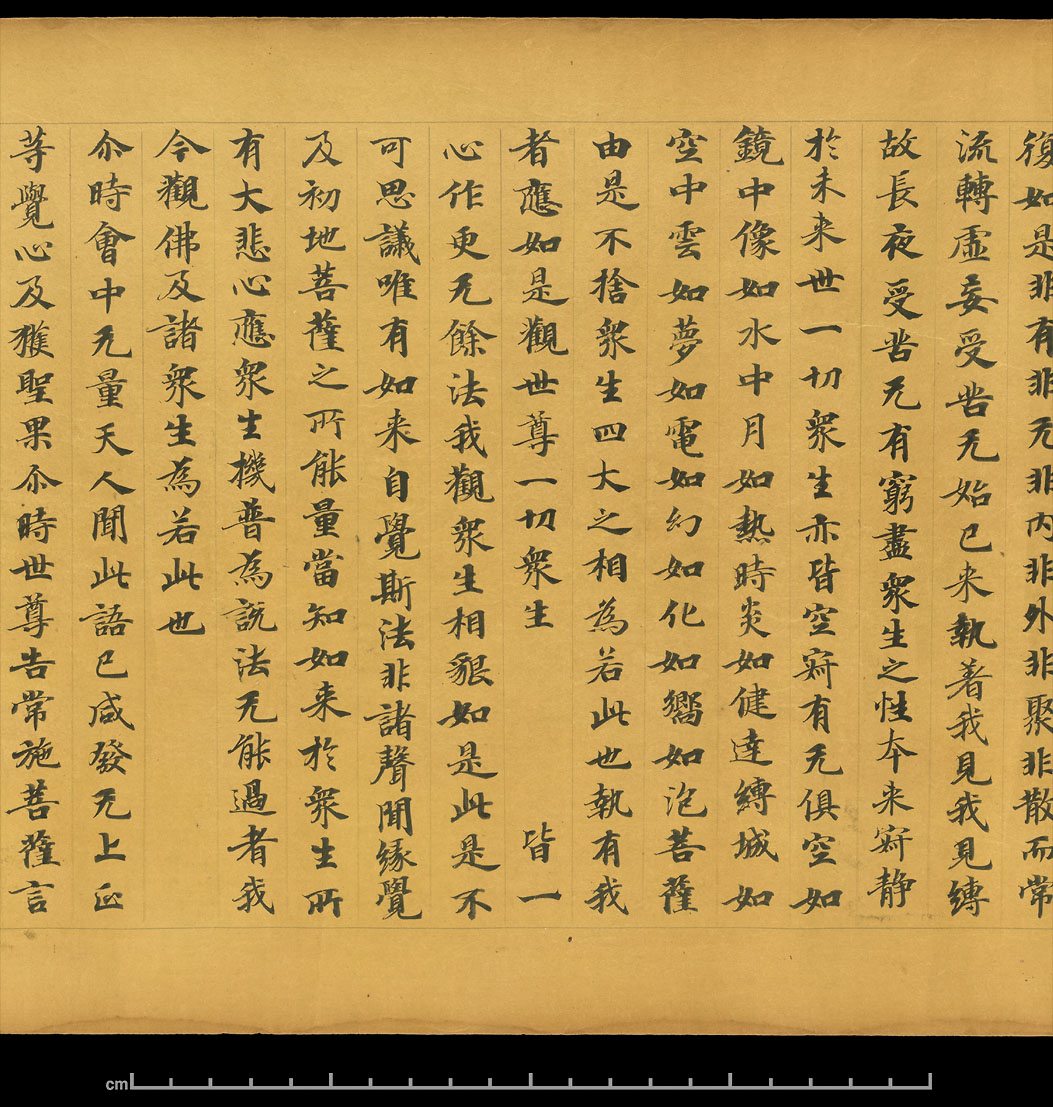 復如是非有非无非內非外非聚非散而常
流轉虛妄受苦无始已来執著我見我見縛
故長夜受苦无有窮盡衆生之性本来寂静
於未来世一切衆生亦皆空寂有无俱空如
鏡中像如水中月如熱時炎如健達縛城如
空中雲如夢如電如幻如化如嚮如泡菩薩
由是不捨衆生四大之相為若此也執有我
者應如是觀世尊一切衆生皆一
心作更无餘法我觀衆生相貌如是此是不
可思議唯有如来自覺斯法非諸聲聞緣覺
及初地菩薩之所能量當知如来於衆生所
有大悲心應衆生機普為說法无能過者我
今觀佛及諸衆生為若此也
尒時會中无量天人聞此語已咸發无上正
等覺心及獲聖果尒時世尊告常施菩薩言
cm